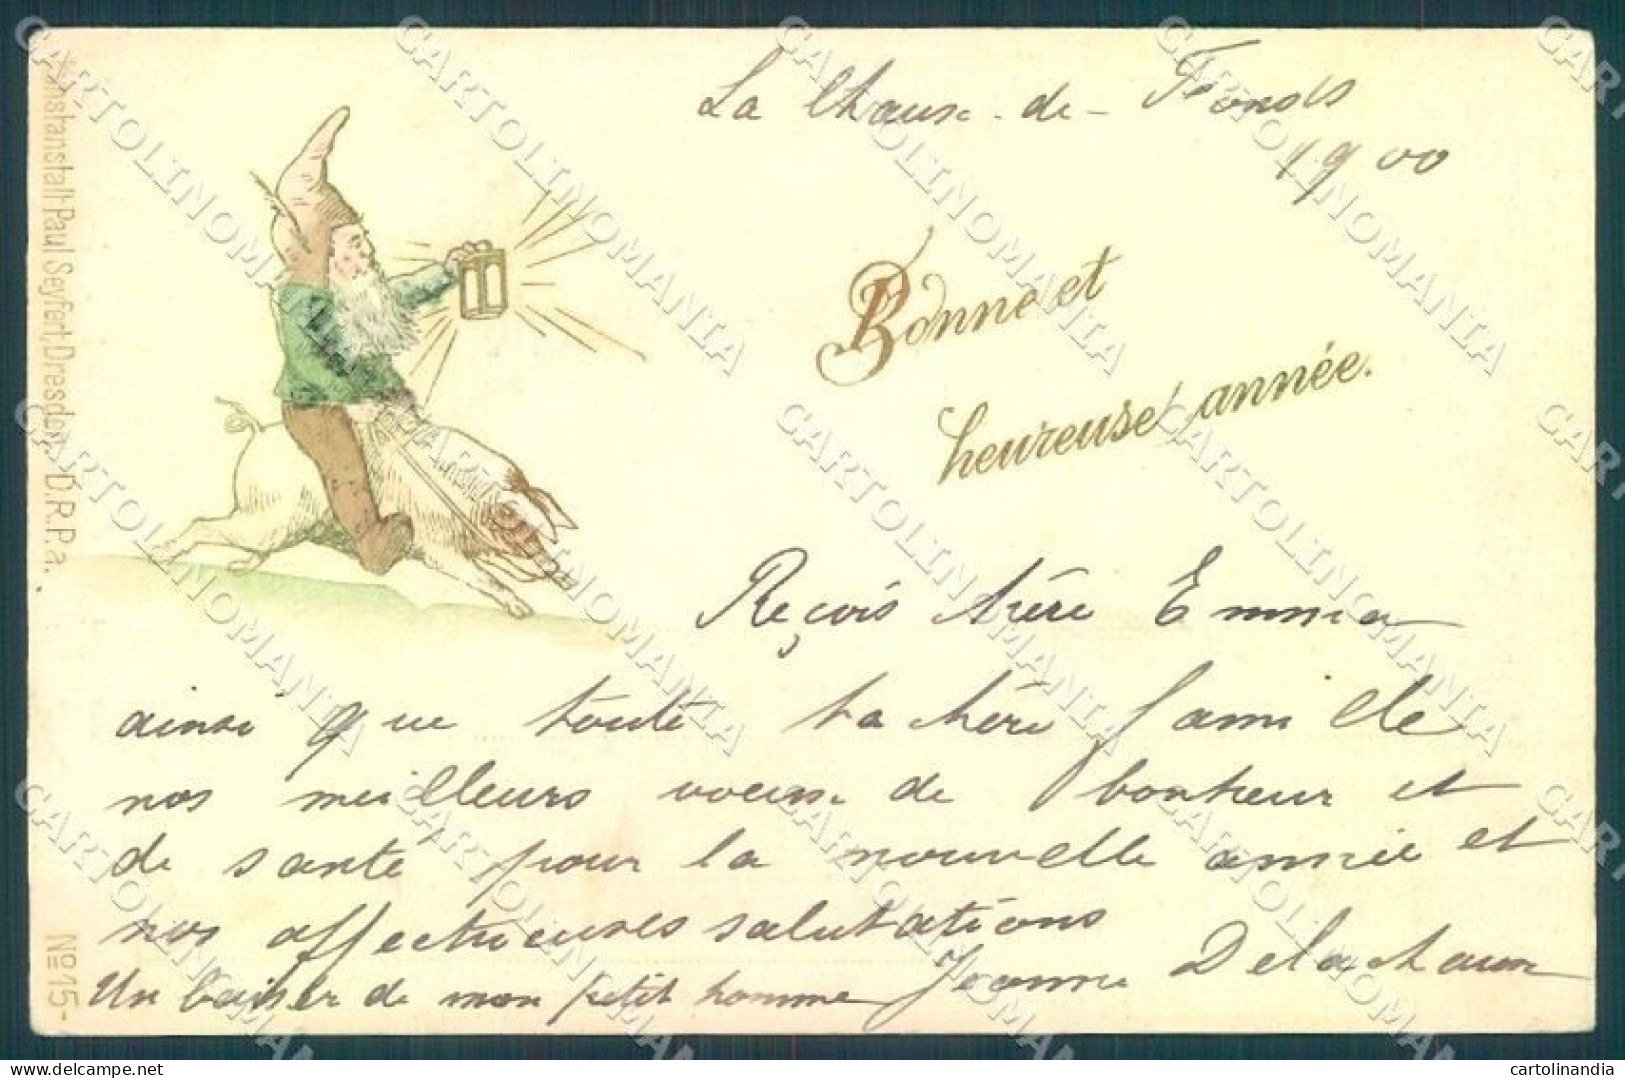 La Chaux-de-Fonds
1900
Bonne et
heureuse année.
Reçois chère Emma
ainsi que toute ta chère famille
nos meilleurs voeux de bonheur et
de santé pour la nouvelle année et
nos affectueuses salutations
Jeanne Delachaux
Un baiser de mon petit homme
Kunstanstalt Paul Seyfert, Dresden. D.R.P.a.
No 15-
CARTOLINOMANIA
cartolinandia